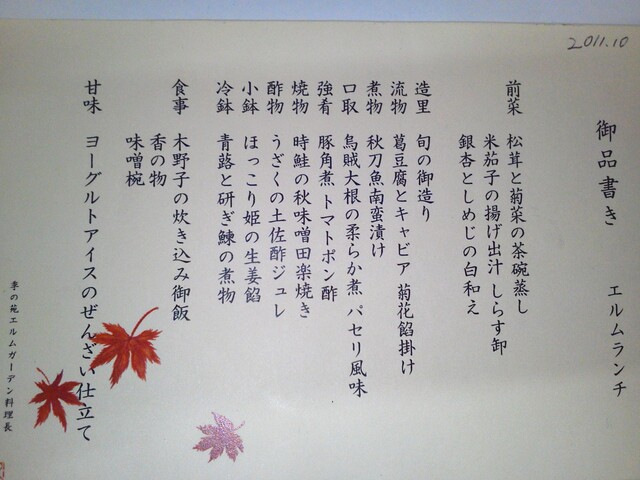 2011.10
御品書き
エルムランチ
前菜 松茸と菊菜の茶碗蒸し
米茄子の揚げ出汁 しらす卸
銀杏としめじの白和え
造里 旬の御造り
流物 葛豆腐とキャビア 菊花餡掛け
煮物 秋刀魚南蛮漬け
口取 烏賊大根の柔らか煮 パセリ風味
強肴 豚角煮 トマトポン酢
焼物 時鮭の秋味噌田楽焼き
酢物 うざくの土佐酢ジュレ
小鉢 ほっこり姫の生姜餡
冷鉢 青蕗と研ぎ鰊の煮物
食事 木野子の炊き込み御飯
香の物
味噌椀
甘味 ヨーグルトアイスのぜんざい仕立て
季の苑エルムガーデン料理長